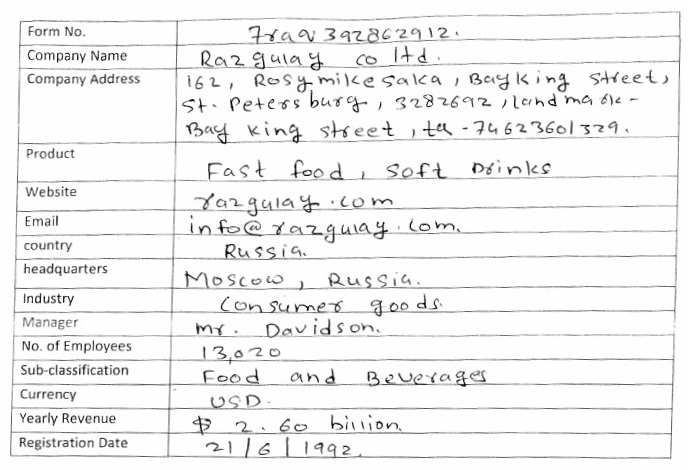 Form No. 7raqv392862912.
Company Name Razgulay co ltd.
Company Address 162, Rosymikesaka, Bayking street,
St. Petersburg, 3282692, landmark-
Bay king street, tel - 74623601329.
Product Fast food, soft Drinks
Website razgulay.com
Email info@razgulay.com.
country Russia.
headquarters Moscow, Russia.
Industry Consumer goods.
Manager Mr. Davidson.
No. of Employees 13,020
Sub-classification Food and Beverages
Currency USD.
Yearly Revenue $ 2.60 billion.
Registration Date 21/6/1992.